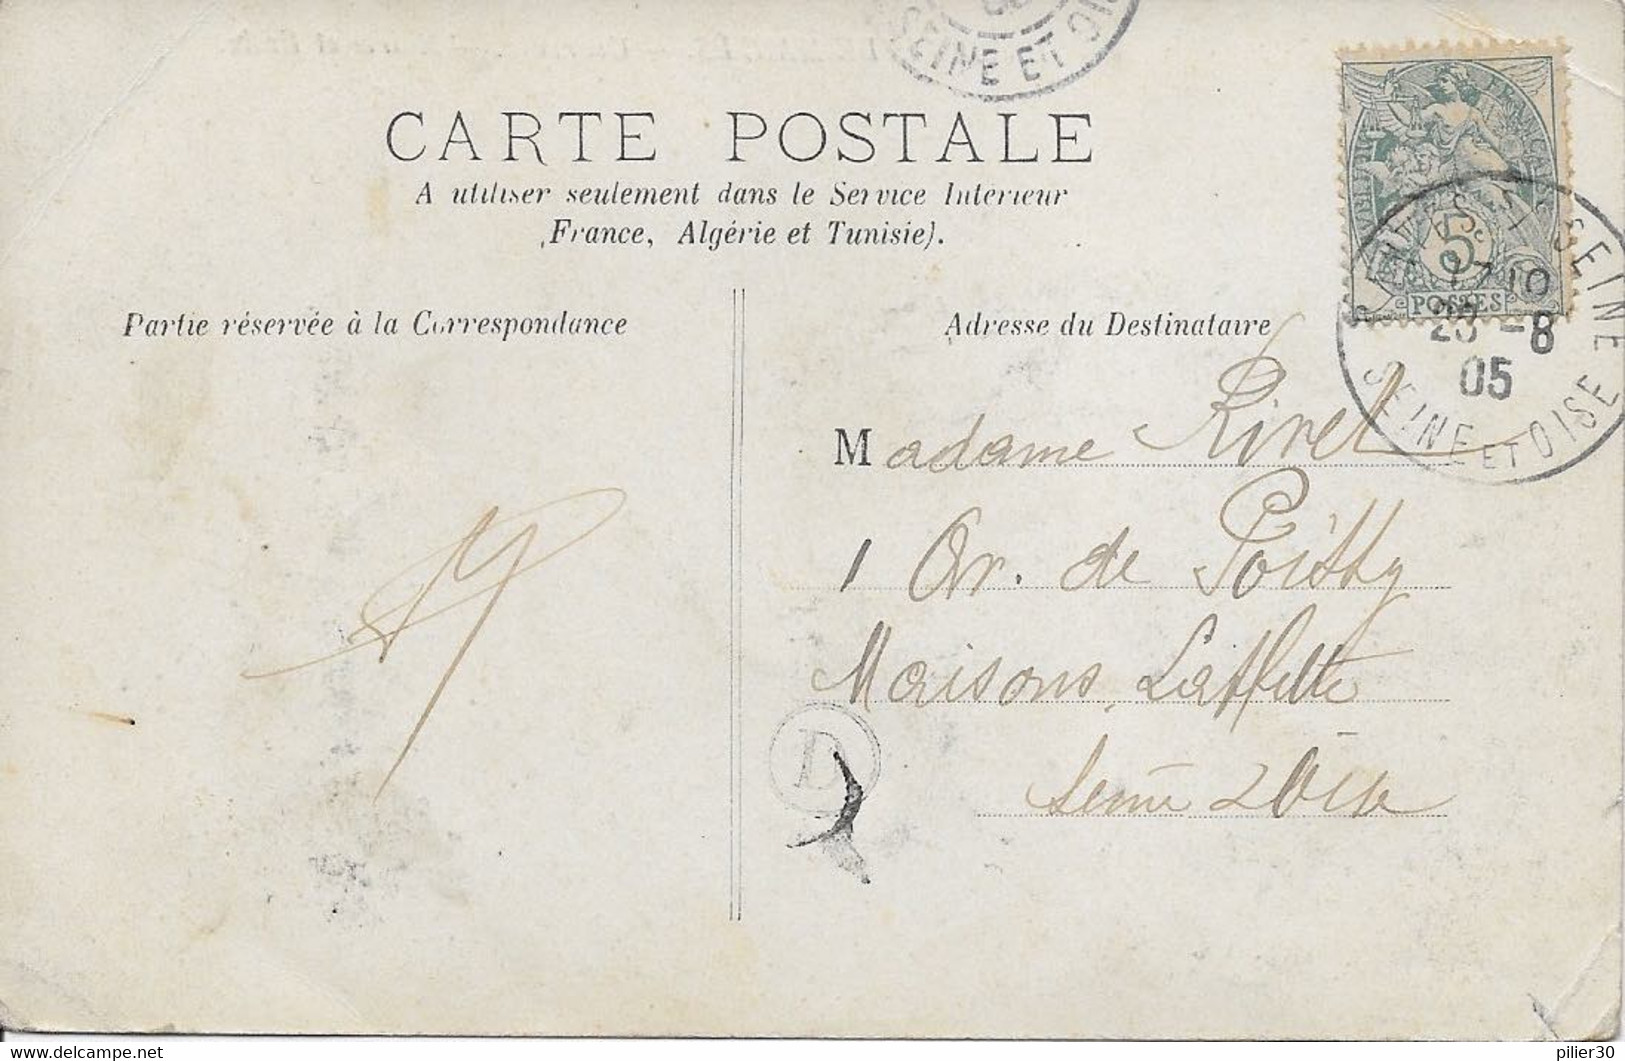 SEINE ET OIS
CARTE POSTALE
A utiliser seulement dans le Service Intérieur
(France, Algérie et Tunisie).
Partie réservée à la Correspondance
Adresse du Destinataire
5
POSTES
17 10
23 -8
05
SEINE ET OISE
Madame Rivet
1 Av. de Poissy
Maisons Laffitte
Seine & Oise
D
delcampe.net
pilier30